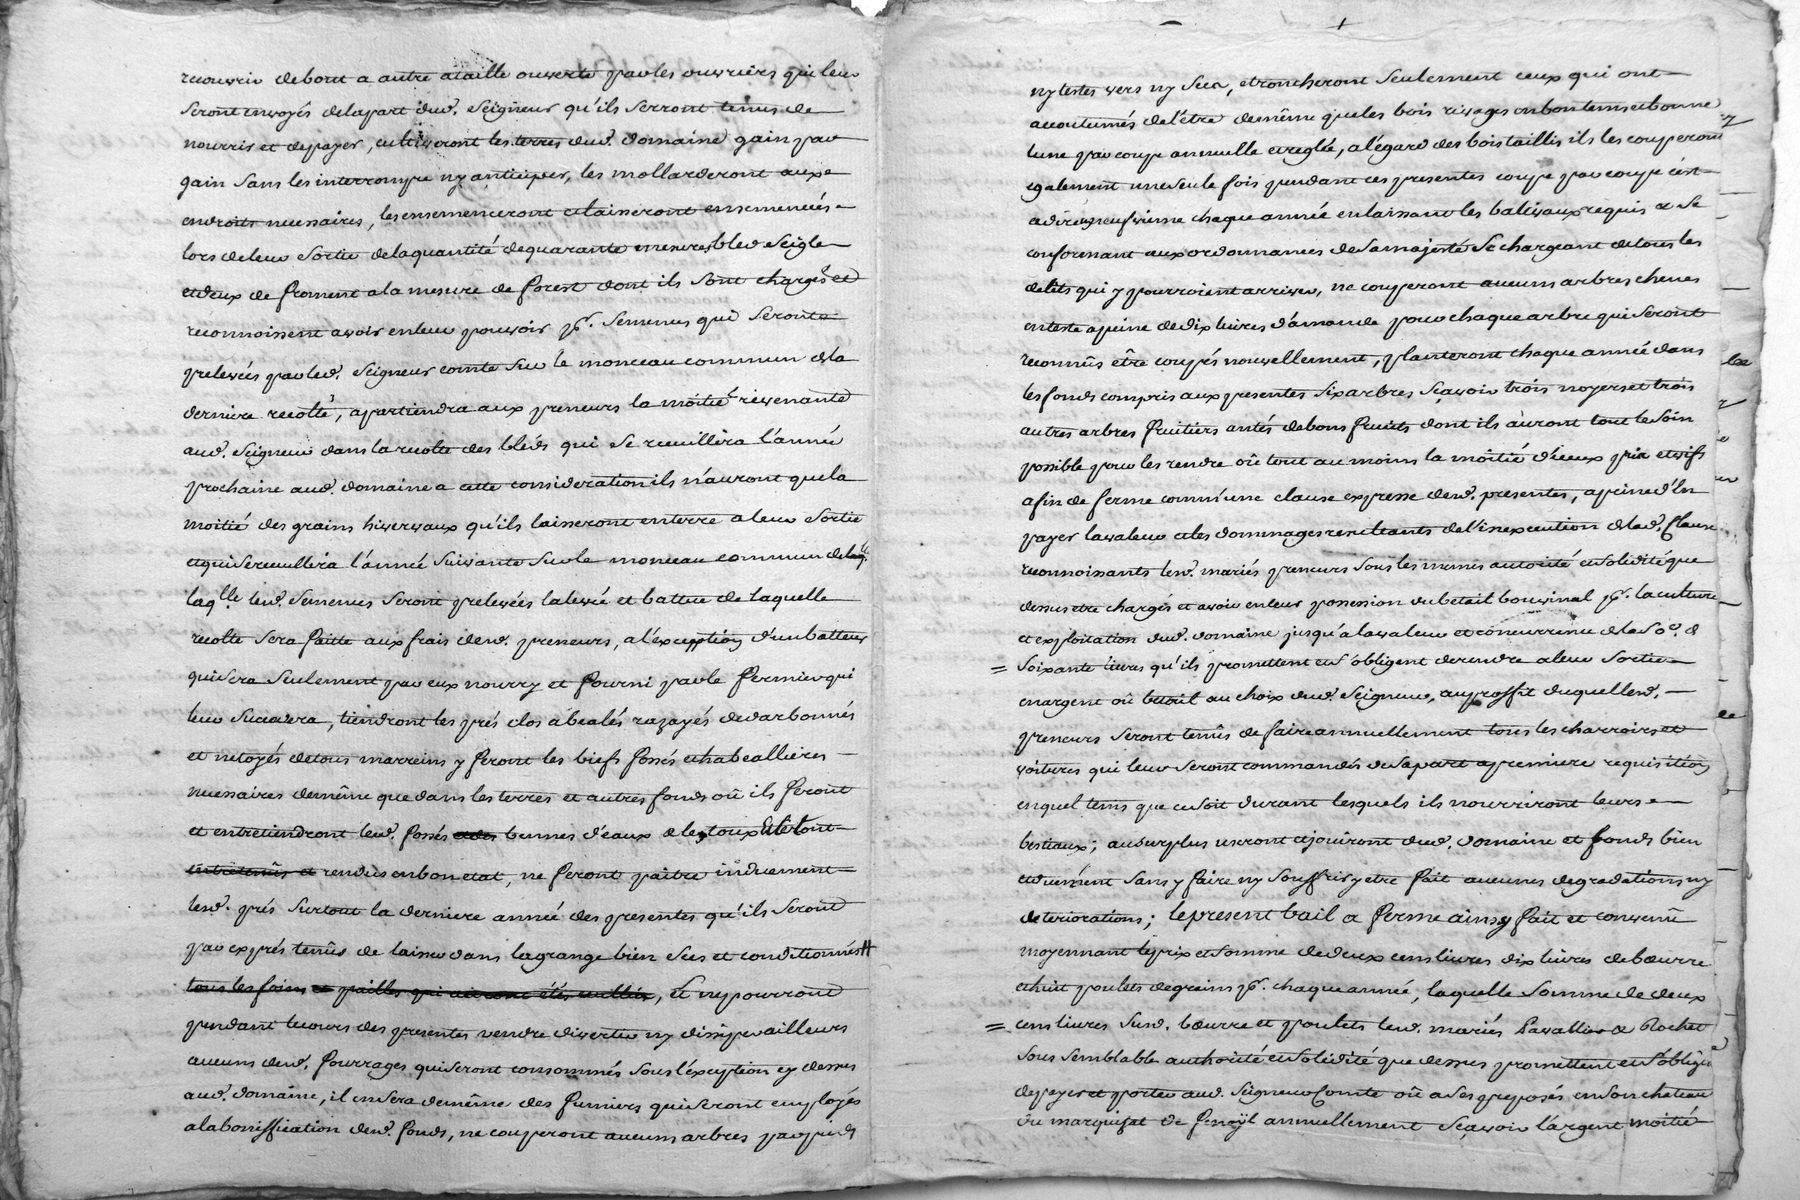 recouvrir debout a autre ataille ouverte par les ouvriers qui leur
seront envoyés delapart dud. Seigneur qu'ils serront tenus de
nourrir et depayer, cultiveront les terres dud. domaine gain par
gain sans les interrompre ny anticiper, les mollarderont aux
endroits necessaires, les ensemenceront etlaisseront ensemencés
lors deleur sortie delaquantité dequarante mesures bled seigle
etdeux de froment ala mesure de forest dont ils sont chargés et
reconnoissent avoir enleur pouvoir pr. semences qui seront
prelevées par led. Seigneur comte sur le monceau commun dela
derniere recolte, apartiendra aux preneurs la moitié revenante
aud. Seigneur dans la recolte des bléds qui se recuillira l'année
prochaine aud. domaine a cette consideration ils n'auront que la
moitié des grains hivernaux qu'ils laisseront enterre aleur sortie
etquiserecuillira l'année suivante surle monceau commun de
laqlle lesd. semences seront prelevées lalevée et battue de laquelle
recolte sera faitte aux frais desd. preneurs, a l'exception d'un batteur
quisera seulement par eux nourry et fourni parle fermier qui
leur succedera, tiendront les prés clos abealés razayés dedarbonnés
et netoyés detous marreins y feront les biefs fossés et abeallieres
necessaires demême que dans les terres et autres fonds où ils feront
et entretiendront lesd. fossés bennes d'eaux
rendus enbon etat, ne feront paitre induement
lesd. prés surtout la derniere année des presentes qu'ils seront
par exprés tenûs de laisser dans lagrange bien secs et conditionnés #
tous les foins et pailles qui auront étés cuillis, et ny pourront
pendant lecours des presentes vendre divertir ny dissiper ailleurs
aucuns desd. fourrages quiseront consommés sous l'exception cy dessus
aud. domaine, il en sera demême des fumiers quiseront employés
alabonnification desd. fonds, ne couperont aucuns arbres par pieds
ny testes vers ny secs, etroncheront seulement ceux qui ont
accoutumés de l'être demême queles bois rivages enbontems etbonne
lune par coupe annuelle etreglée, a l'égard des bois taillis ils les couperont
egalement une seule fois pendant ces presentes coupe par coupe c'est
adire neufvieme chaque année enlaissant les baliveaux requis & se
conformant aux ordonnances de samajesté se chargeant detous les
delits qui y pourroient arriver, ne couperont aucuns arbres chenes
enteste apeine dedix livres d'amande pour chaque arbre qui seront
reconnûs être coupés nouvellement, planteront chaque année dans
les fonds compris aux presentes six arbres sçavoir trois noyers et trois
autres arbres fruitiers antés debons fruits dont ils auront tout le soin
possible pour les rendre où tout au moins la moitié d'iceux pris et vifs
afin de ferme comm'une clause expresse desd. presentes, apeine d'En
payer lavaleur etles dommages resultants de l'inexecution delad. Clause
reconnoissants lesd. mariés preneurs sous les mêmes autorité etsolidité que
dessus etre chargés et avoir enleur possession dubetail bouvinal pr. laculture
et exploitation dud. domaine jusqu'a lavaleur et concurrence
soixante livres qu'ils promettent et s'obligent derendre aleur sortie
enargent où betail au choix dud. Seigneur, auproffit duquel lesd.
preneurs seront tenûs de faire annuellement tous les charroirs et
voitures qui leur seront commandés desapart apremiere requisition
enquel tems que cesoit durant lesquels ils nourriront leurs
bestiaux; ausurplus useront etjouiront dud. domaine et fonds bien
etduement sans y faire ny souffrir y etre fait aucunes degradations ny
deteriorations; lepresent bail a ferme ainsy fait et convenû
moyennant leprix etsomme dedeux cens livres dix livres debeurre
ethuit poulets degrains pr. chaque année, laquelle somme de deux
cens livres susd. beurre et poulets lesd. mariés Lavallier & Rochet
sous semblable authorité etsolidité que dessus promettent et s'oblige
depayer et porter aud. Seigneur Comte où ases preposés ensonchateau
du marquisat de fenoÿl annuellement sçavoir l'argent moitié